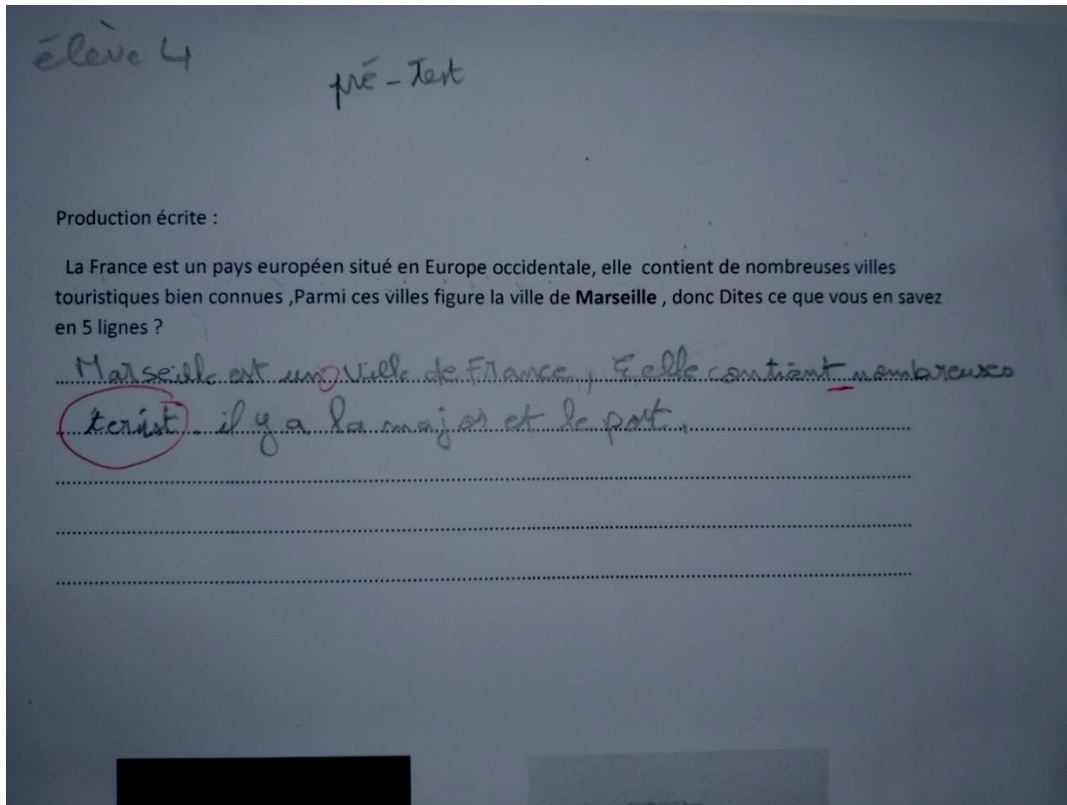 élève 4
pré-Test
Production écrite :
La France est un pays européen situé en Europe occidentale, elle contient de nombreuses villes
touristiques bien connues ,Parmi ces villes figure la ville de Marseille , donc Dites ce que vous en savez
en 5 lignes ?
Marseille est un ville de France, Eelle contient nombreuses
terist. il y a la major et le port.